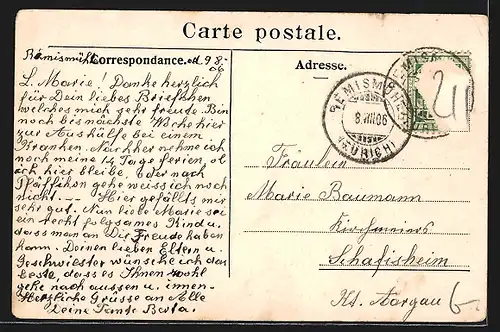 Carte postale.
Correspondance.
Adresse.
Remismühle d. 9 8.
06
L. Marie! Danke herzlich
für Dein liebes Briefchen
welches mich sehr freute. Bin
noch bis nächste Woche hier
zur Aushülfe bei einem
Kranken. Nachher nehme ich
noch meine 14 Tage ferien, ob
ich hier bleibe. Oder nach
Pfäffikon gehe weiss ich noch
nicht. -- Hier gefällts mir
sehr gut. Nun liebe Marie sei
ein recht folgsames Kind u.
dass man an Dir Freude haben
kann. Deinen lieben Eltern u.
Geschwister wünsche ich das
beste, dass es Ihnen wohl
gehe nach aussen u. innen.
Herzliche Grüsse an Alle
Deine Tante Berta.
REMISMÜHLE
8.VIII.06
(ZÜRICH)
211
Fräulein
Marie Baumann
Schafisheim
Kt. Aargau